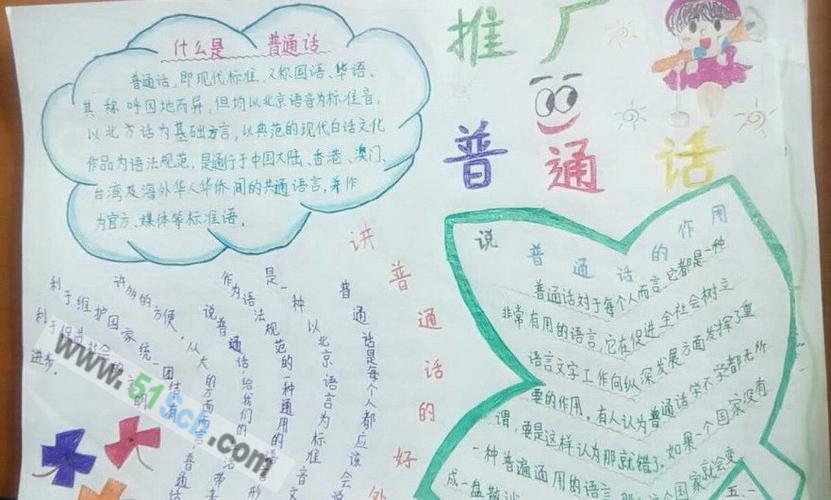 推广
普通话
什么是 普通话
普通话,即现代标准,又称国语、华语,
其称呼因地而异,但均以北京语音为标准音,
以北方话为基础方言,以典范的现代白话文化
作品为语法规范,是通行于中国大陆、香港、澳门、
台湾及海外华人华侨间的共通语言,并作
为官方、媒体等标准语。
讲普通话的好处
普通话是每个人都应该会说
是一种以北京语言为标准音
作为语法规范的一种通用的语言形
说普通话,给我们的
许多的方便,从大的方面
利于维护国家统一团结,有
利于促进社会
进步。
说普通话的作用
普通话对于每个人而言,它都是一种
非常有用的语言,它在促进全社会树立
语言文字工作向纵深发展方面发挥了重
要的作用。有人认为普通话学不学都无所
谓,要是这样认为那就错了。如果一个国家没有
一种普遍通用的语言,那么这个国家就会变
成一盘散沙
www.51Sch.com